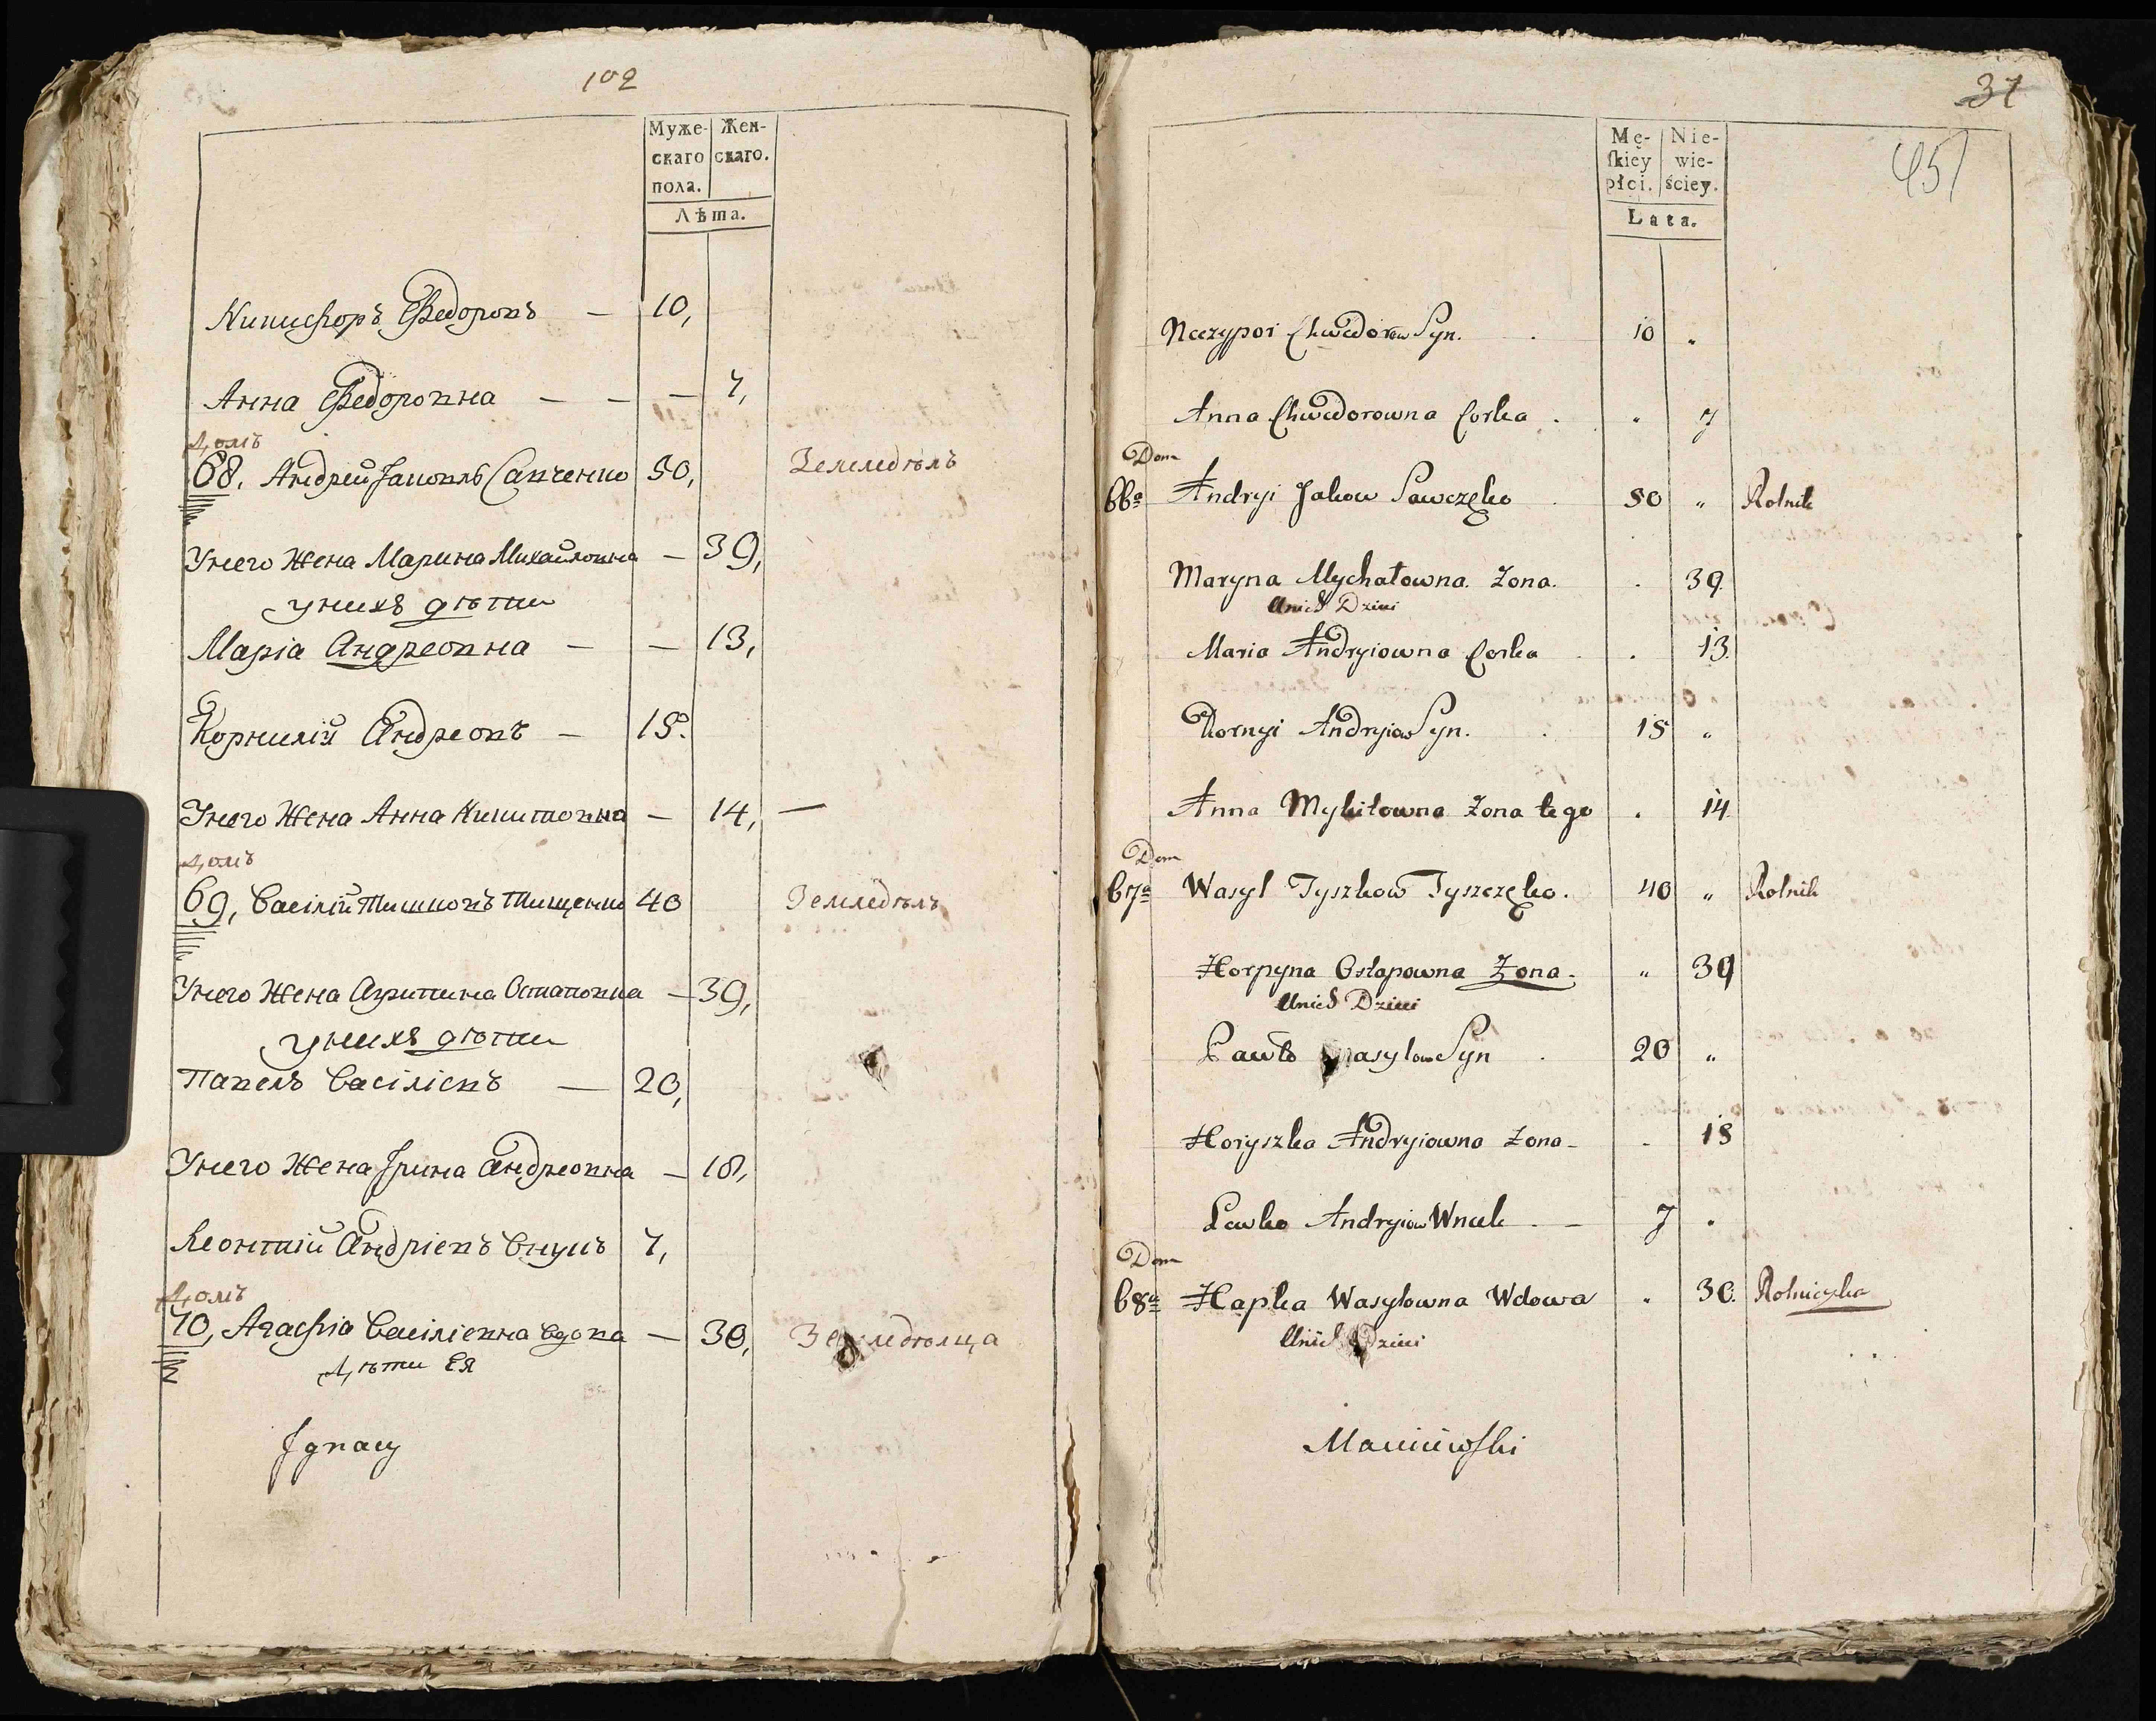 102
Муже-
скаго
пола.
Жен-
скаго.
Лѣта.
Никифоръ Федоровъ — 10,
Анна Федоровна — — — 7,
Домъ
68, Андрей Яковлъ Савченко 50, Земледѣлъ
Унего Жена Марина Михайловна — 39,
унихъ дѣти
Маріа Андреовна — — 13,
Корнилій Андреовъ — 18.
Унего Жена Анна Никитовна — 14, —
Домъ
69, Василій Тишковъ Тищенко 40 Земледѣлъ
Унего Жена Агрипина Остаповна — 39,
унихъ дѣти
Павелъ Василіевъ — 20,
Унего Жена Ірина Андреовна — 18,
Леонтій Андріевъ Внукъ 7,
Домъ
70, Агафіа Василіевна вдова — 30, Земледѣлица
Дѣти Ея
Ignacy
37
451
Mę-
skiey
płci.
Nie-
wie-
ściey.
Lata.
Neczypor Chwedorow Syn. 10 "
Anna Chwedorowna Corka . " 7
Dom
66a Andryi Jakow Sawczęko 50 " Rolnik
Maryna Mychałowna. Zona. . 39.
Unich Dzieci
Maria Andryiowna Corka . 13.
Kornyi Andryiow Syn. 18 "
Anna Mykitowna Zona tego . 14.
Dom
67a Wasyl Tyszkow Tyszczęko. 40 " Rolnik
Horpyna Ostapowna Zona. " 39
Unich Dzieci
Pawło Wasylow Syn . 20 "
Horyszka Andryiowna Zona - . 18
Lewko Andryiow Wnuk - 7 .
Dom
68a Hapka Wasylowna Wdowa " 30. Rolniczka
Unich Dzieci